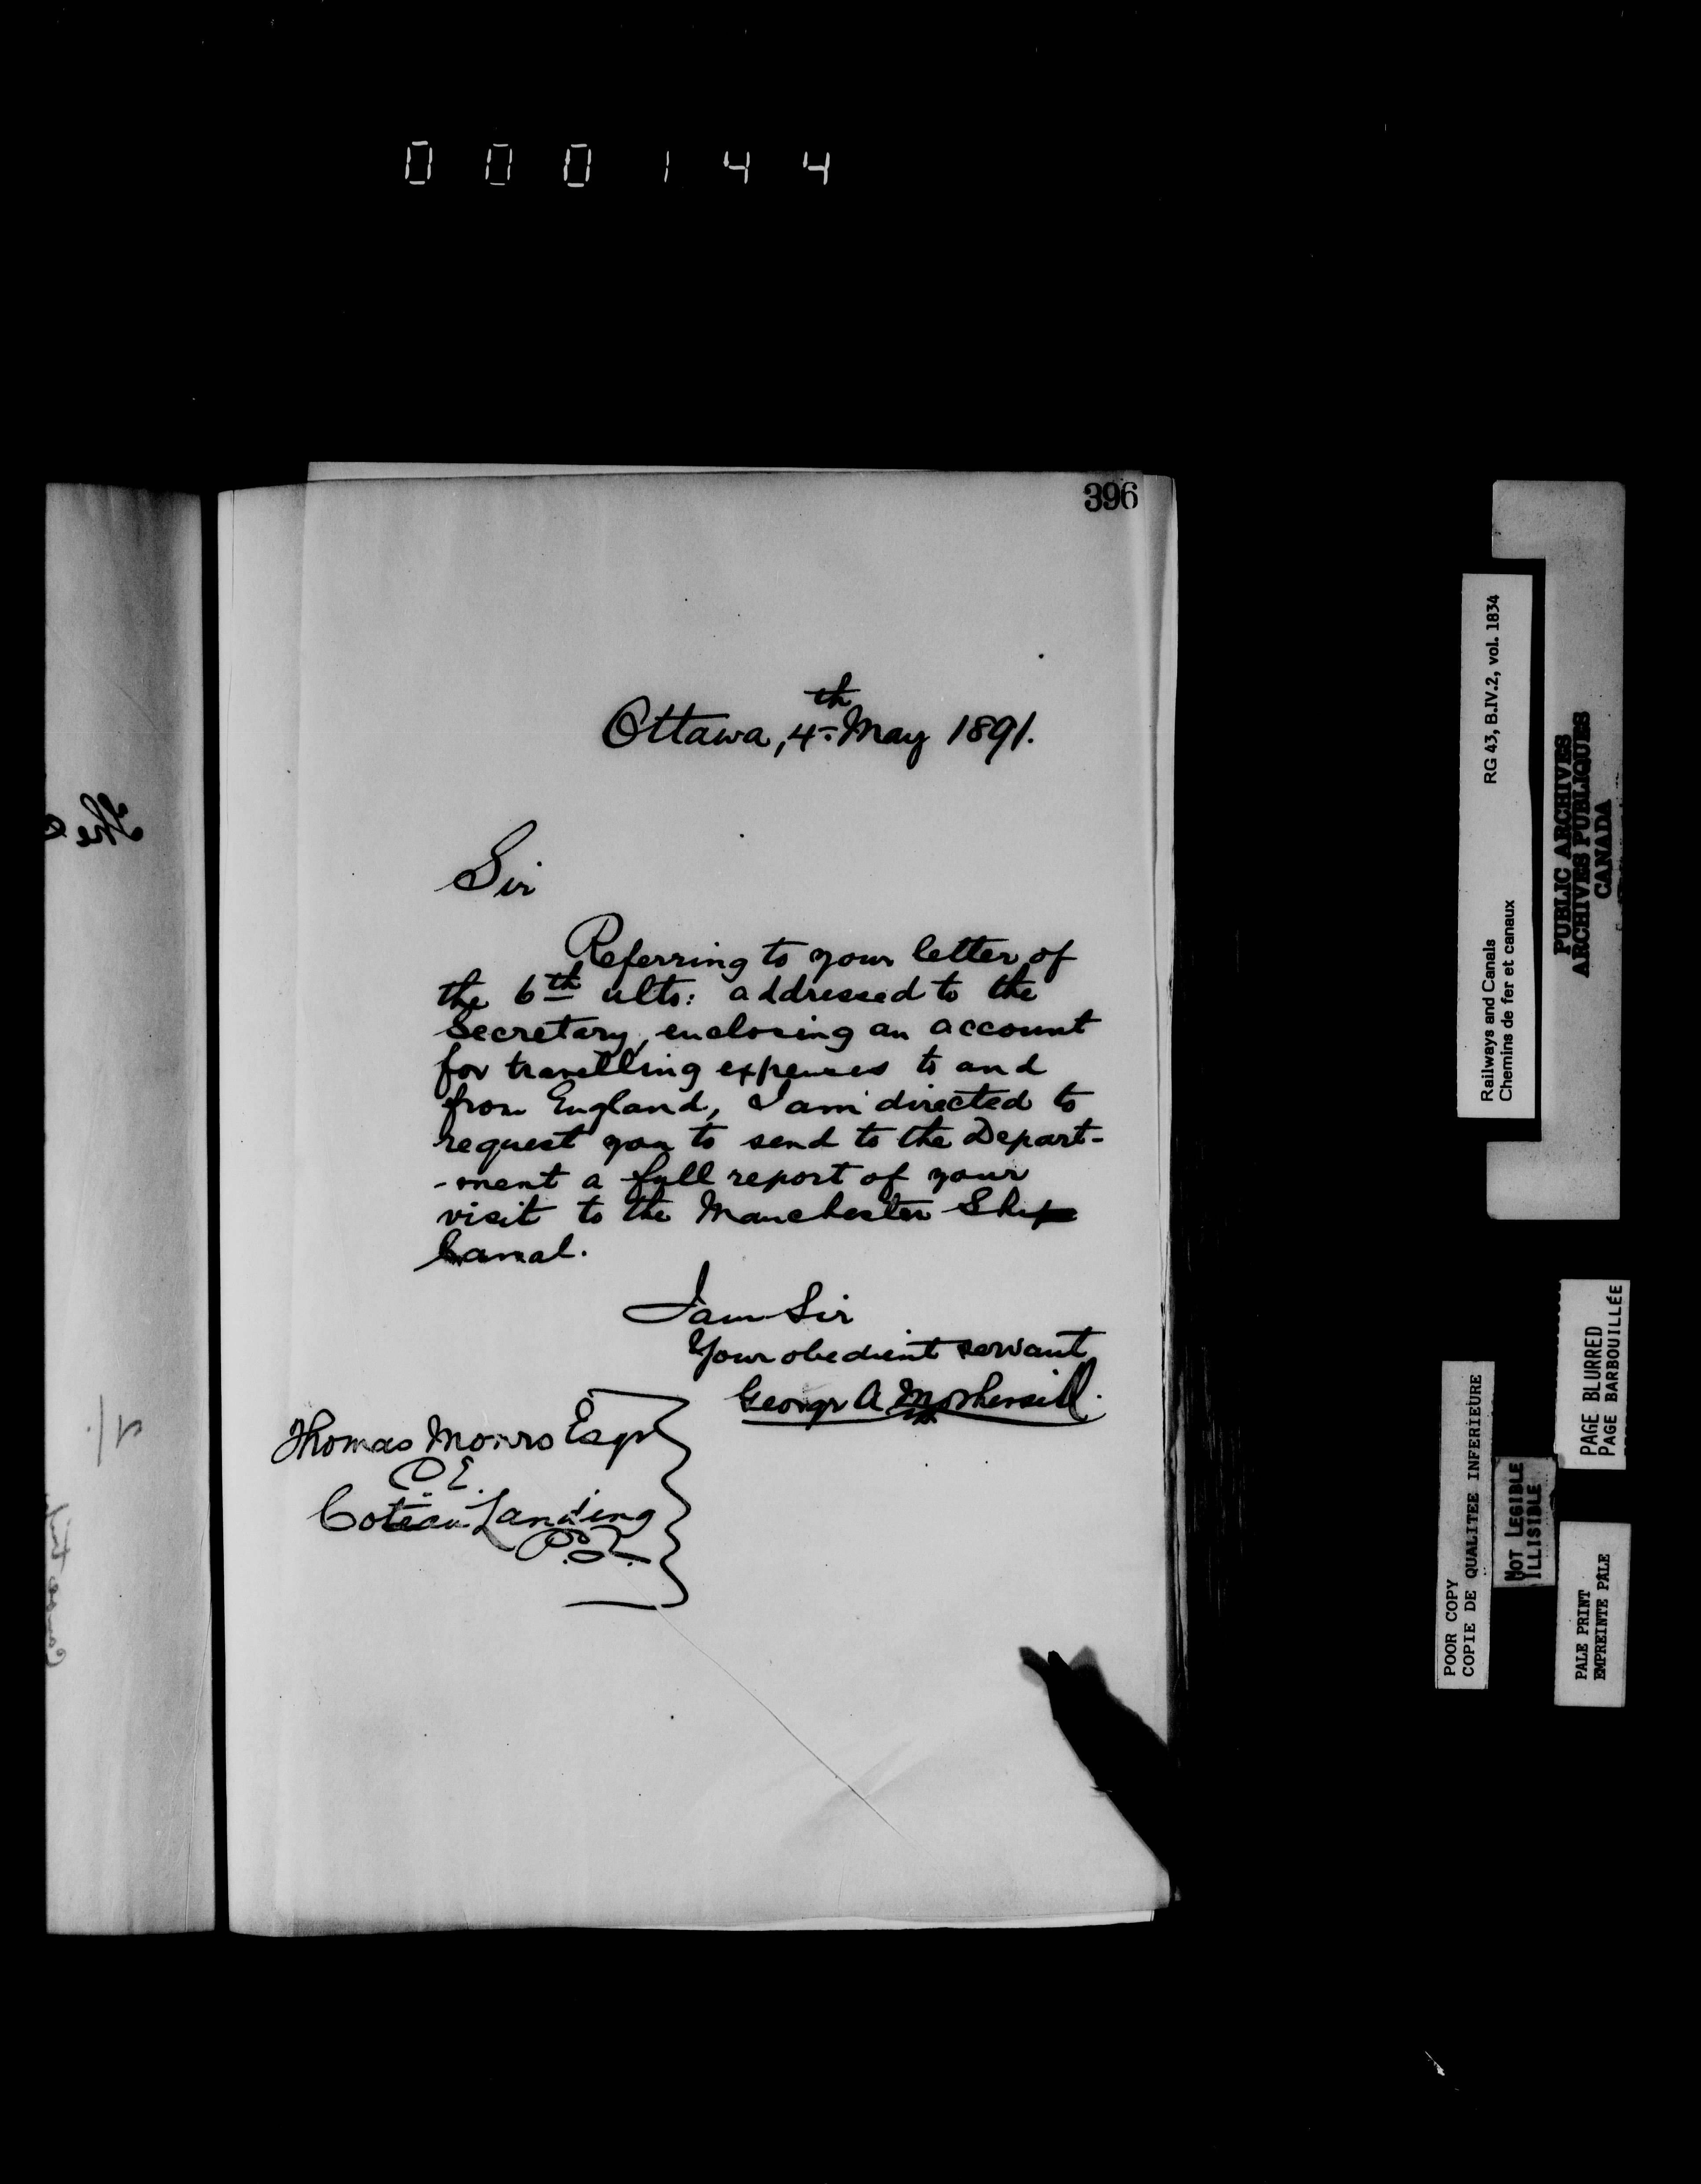 000144
396
Ottawa, 4th May 1891.
Sir
Referring to your letter of
the 6th ulto: addressed to the
Secretary, enclosing an account
for travelling expenses to and
from England, I am directed to
request you to send to the Depart-
-ment a full report of your
visit to the Manchester Ship
Canal.
I am Sir
Your obedient servant
George A Mothersill.
Thomas Monro Esqr
C E.
Coteau Landing
P.Q.
The
Railways and Canals RG 43, B.IV.2, vol. 1834
Chemins de fer et canaux
PUBLIC ARCHIVES
ARCHIVES PUBLIQUES
CANADA
PAGE BLURRED
PAGE BARBOUILLÉE
POOR COPY
COPIE DE QUALITEE INFERIEURE
NOT LEGIBLE
ILLISIBLE
PALE PRINT
EMPREINTE PALE